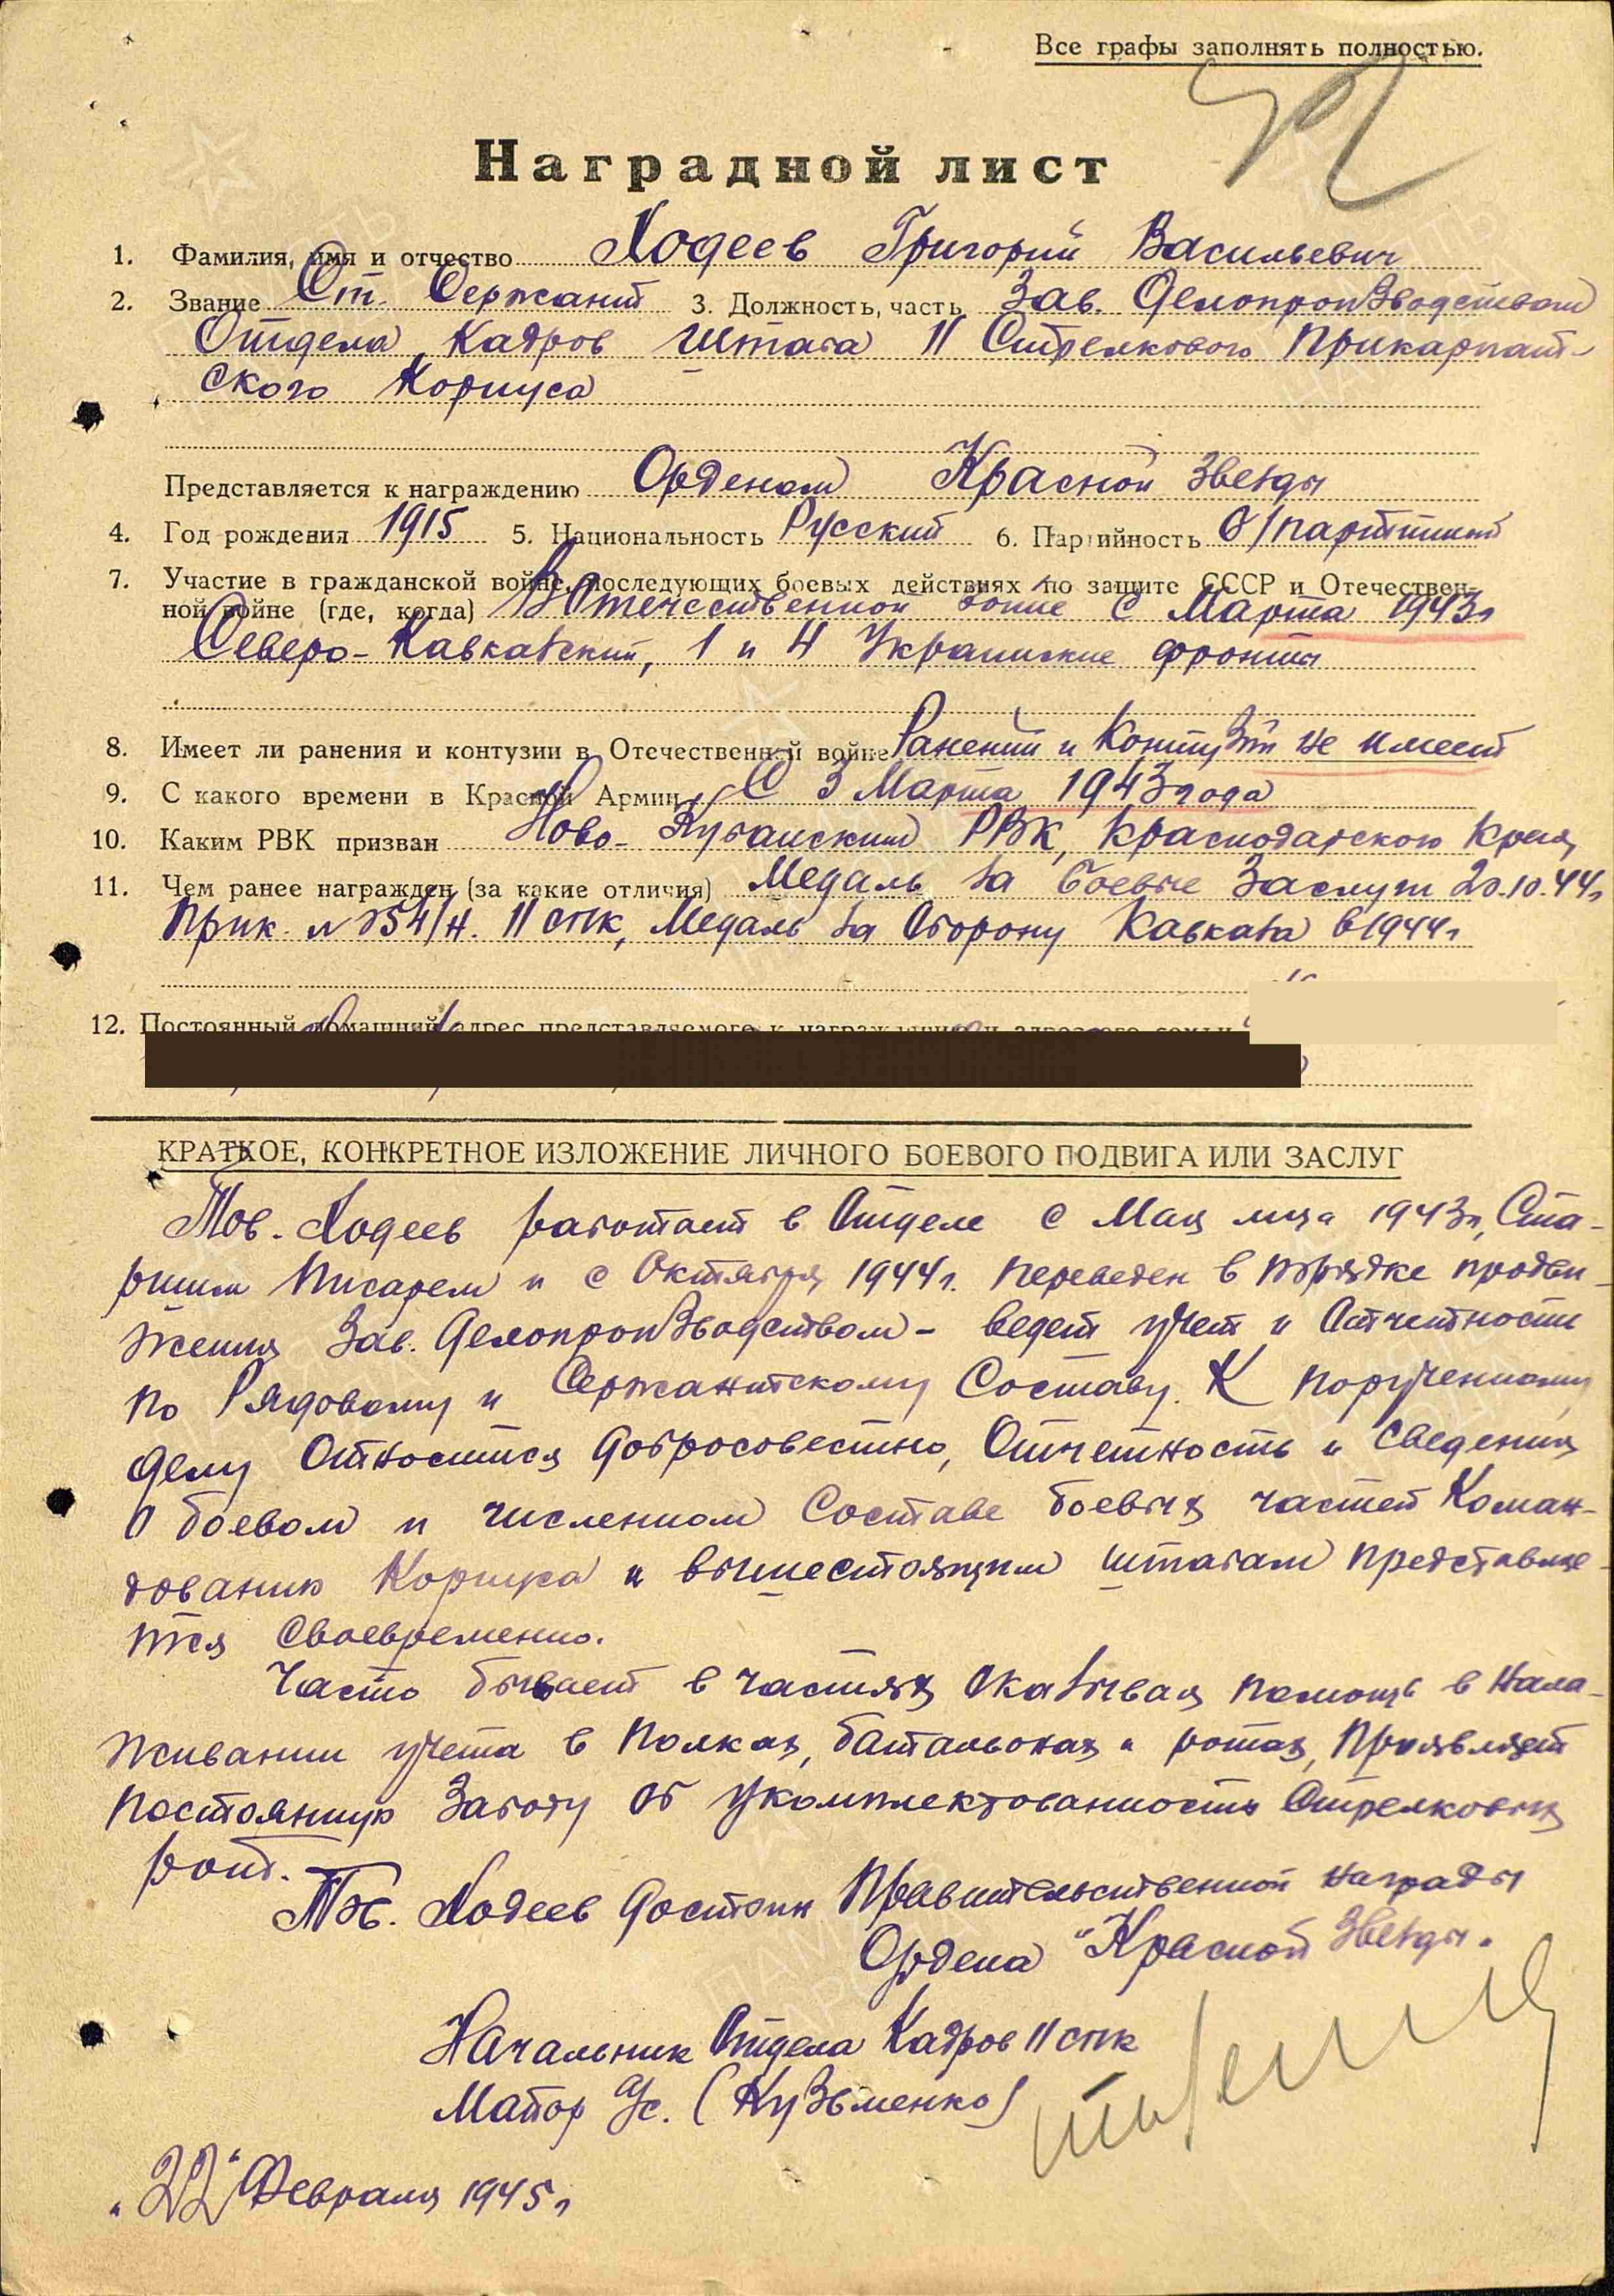 Все графы заполнять полностью.
Наградной лист
1. Фамилия, имя и отчество Ходеев Григорий Васильевич
2. Звание Ст. Сержант 3. Должность, часть Зав. Делопроизводством
Отдела Кадров штаба 11 Стрелкового Прикарпат-
ского Корпуса
Представляется к награждению Орденом Красной Звезды
4. Год рождения 1915 5. Национальность Русский 6. Партийность б/партийный
7. Участие в гражданской войне, последующих боевых действиях по защите СССР и Отечествен-
ной войне (где, когда) В Отечественной войне с Марта 1943г
Северо-Кавказский, 1 и 4 Украинские фронты
8. Имеет ли ранения и контузии в Отечественной войне Ранений и Контузий не имеет
9. С какого времени в Красной Армии С 3 Марта 1943 года
10. Каким РВК призван Ново-Кубанским РВК, Краснодарского Края
11. Чем ранее награжден (за какие отличия) Медаль за Боевые Заслуги 20.10.44г
Прик. № 054/н. 11 стк, Медаль за Оборону Кавказа в 1944г
12. Постоянный домашний адрес представляемого к награждению и адрес его семьи
КРАТКОЕ, КОНКРЕТНОЕ ИЗЛОЖЕНИЕ ЛИЧНОГО БОЕВОГО ПОДВИГА ИЛИ ЗАСЛУГ
Тов. Ходеев работает в Отделе с Мая м-ца 1943г, Ста-
ршим Писарем и с Октября 1944г. переведен в порядке продви-
жения Зав. Делопроизводством - ведет учет и Отчетности
по Рядовому и Сержантскому Составу. К порученному
делу Относится добросовестно, Отчетность и Сведения
О боевом и численном Составе боевых частей Коман-
дованию Корпуса и вышестоящим штабам представляе-
тся Своевременно.
Часто бывает в частях Оказывая помощь в Нала-
живании учета в Полках, батальонах и ротах, Проявляет
постоянную Заботу об укомплектованности Стрелковых
рот.
Тов. Ходеев достоин Правительственной награды
Ордена "Красной Звезды".
Начальник Отдела Кадров 11 стк
Майор а/с. (Кузьменко)
"22" Февраля 1945г